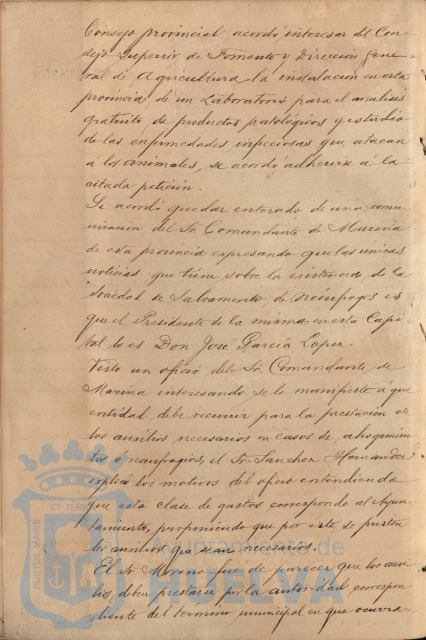 Consejo provincial acordó interesar del Con-
sejo Superior de Fomento y Dirección Gene-
ral de Agricultura la instalación en esta
provincia, de un Laboratorio para el analisis
gratuito de productos patológicos y estudio
de las enfermedades infecciosas que atacan
a los animales, se acordó adherirse á la
citada petición.
Se acordó quedar enterado de una comu-
nicación del Sr. Comandante de Marina
de esta provincia expresando que las unicas
noticias que tiene sobre la existencia de la
Sociedad de Salvamento de Náufragos es
que el Presidente de la misma en esta Capi-
tal lo es Don José García Lopez.
Visto un oficio del Sr. Comandante de
Marina interesando se le manifieste á que
entidad debe recurrir para la prestación de
los auxilios necesarios en casos de ahogamien
tos ó naufragios, el Sr. Sanchez Hernandez
explicó los motivos del oficio entendiendo
que esta clase de gastos corresponde al Ayun-
tamiento, proponiendo que por éste se presten
los auxilios que sean necesarios.
El Sr. Moreno fué de parecer que los auxi-
lios deben prestarse por la autoridad correspon
diente del termino municipal en que ocurra
PORTUS MARIS ET TERR
Ayuntamiento de
HUELVA